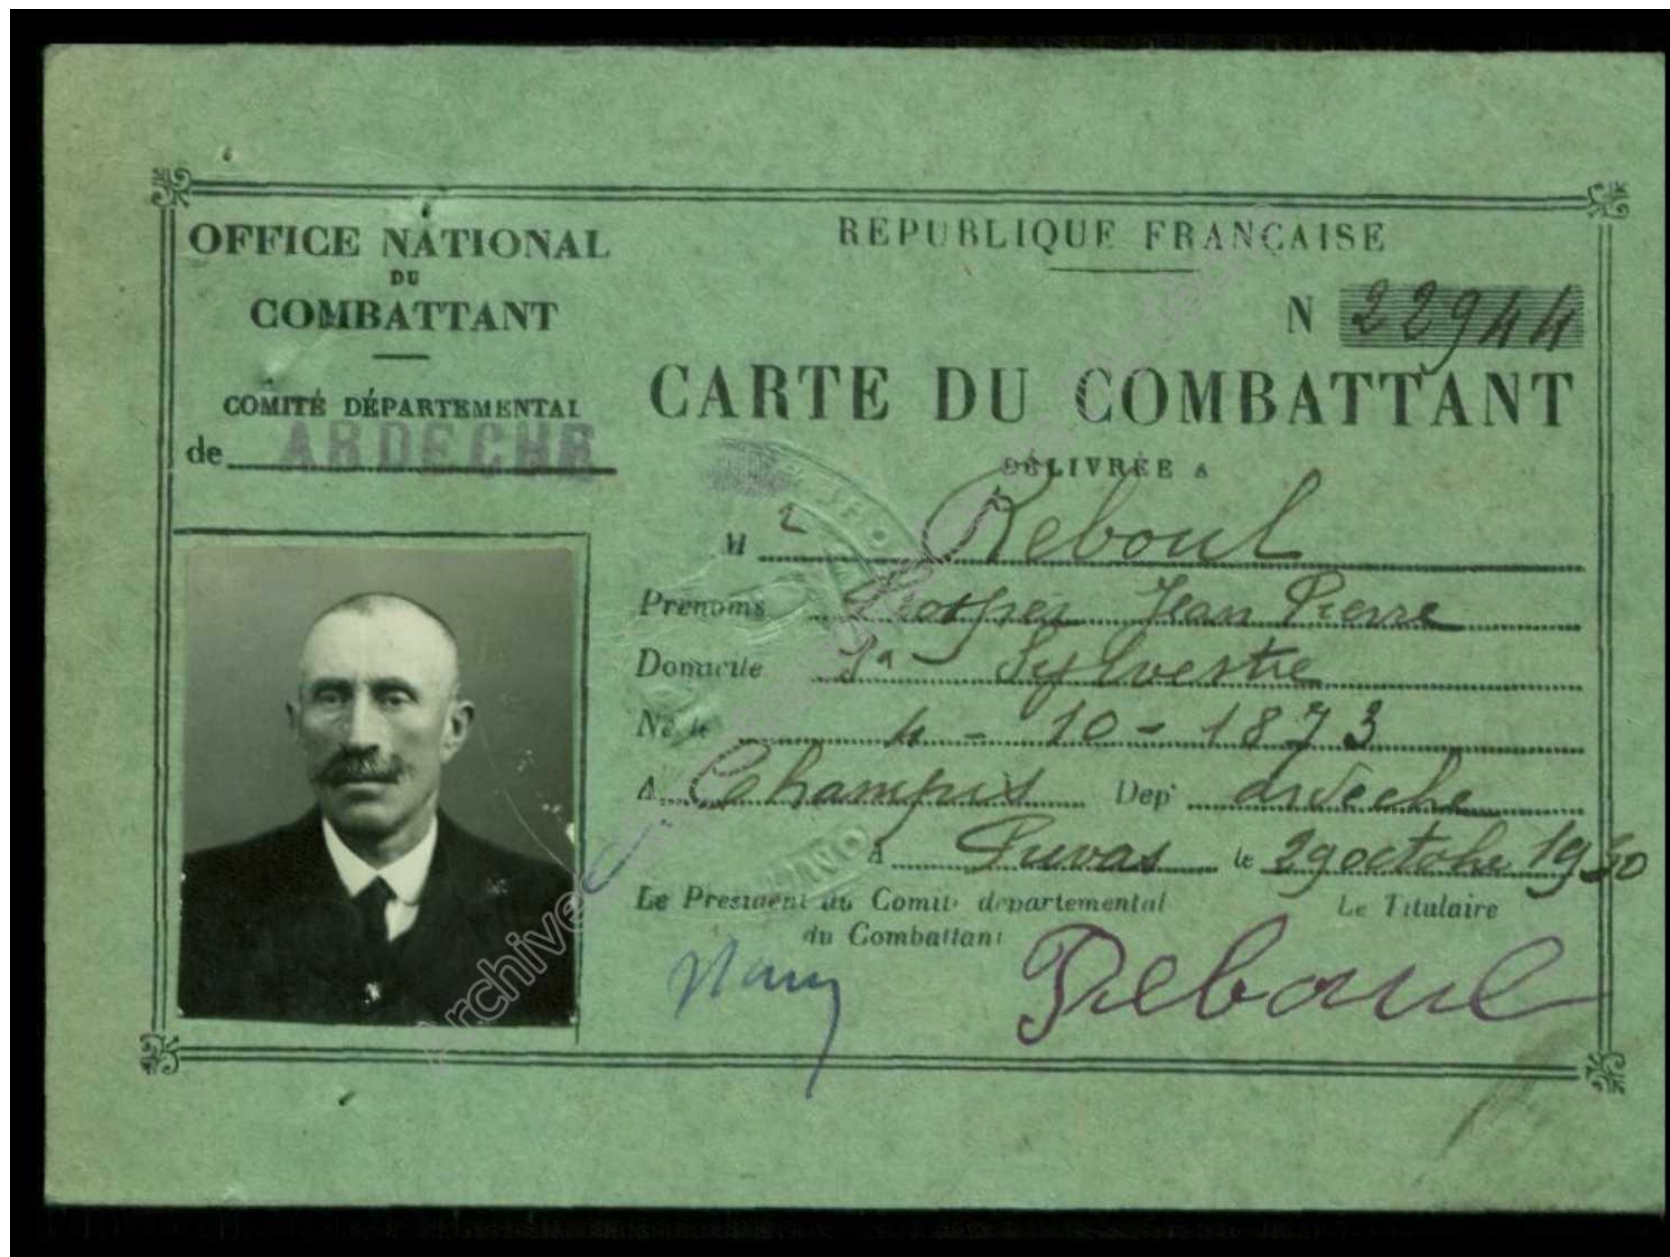 OFFICE NATIONAL
DU
COMBATTANT
COMITÉ DÉPARTEMENTAL
de ARDECHE
REPUBLIQUE FRANÇAISE
N 22944
CARTE DU COMBATTANT
DÉLIVRÉE A
M r Reboul
Prénoms Prosper Jean Pierre
Domicile St Sylvestre
Né le 4 - 10 - 1873
A Champis Dept ardèche
A Privas le 29 octobre 1930
Le President du Comité départemental
du Combattant
Le Titulaire
Reboul
Archives